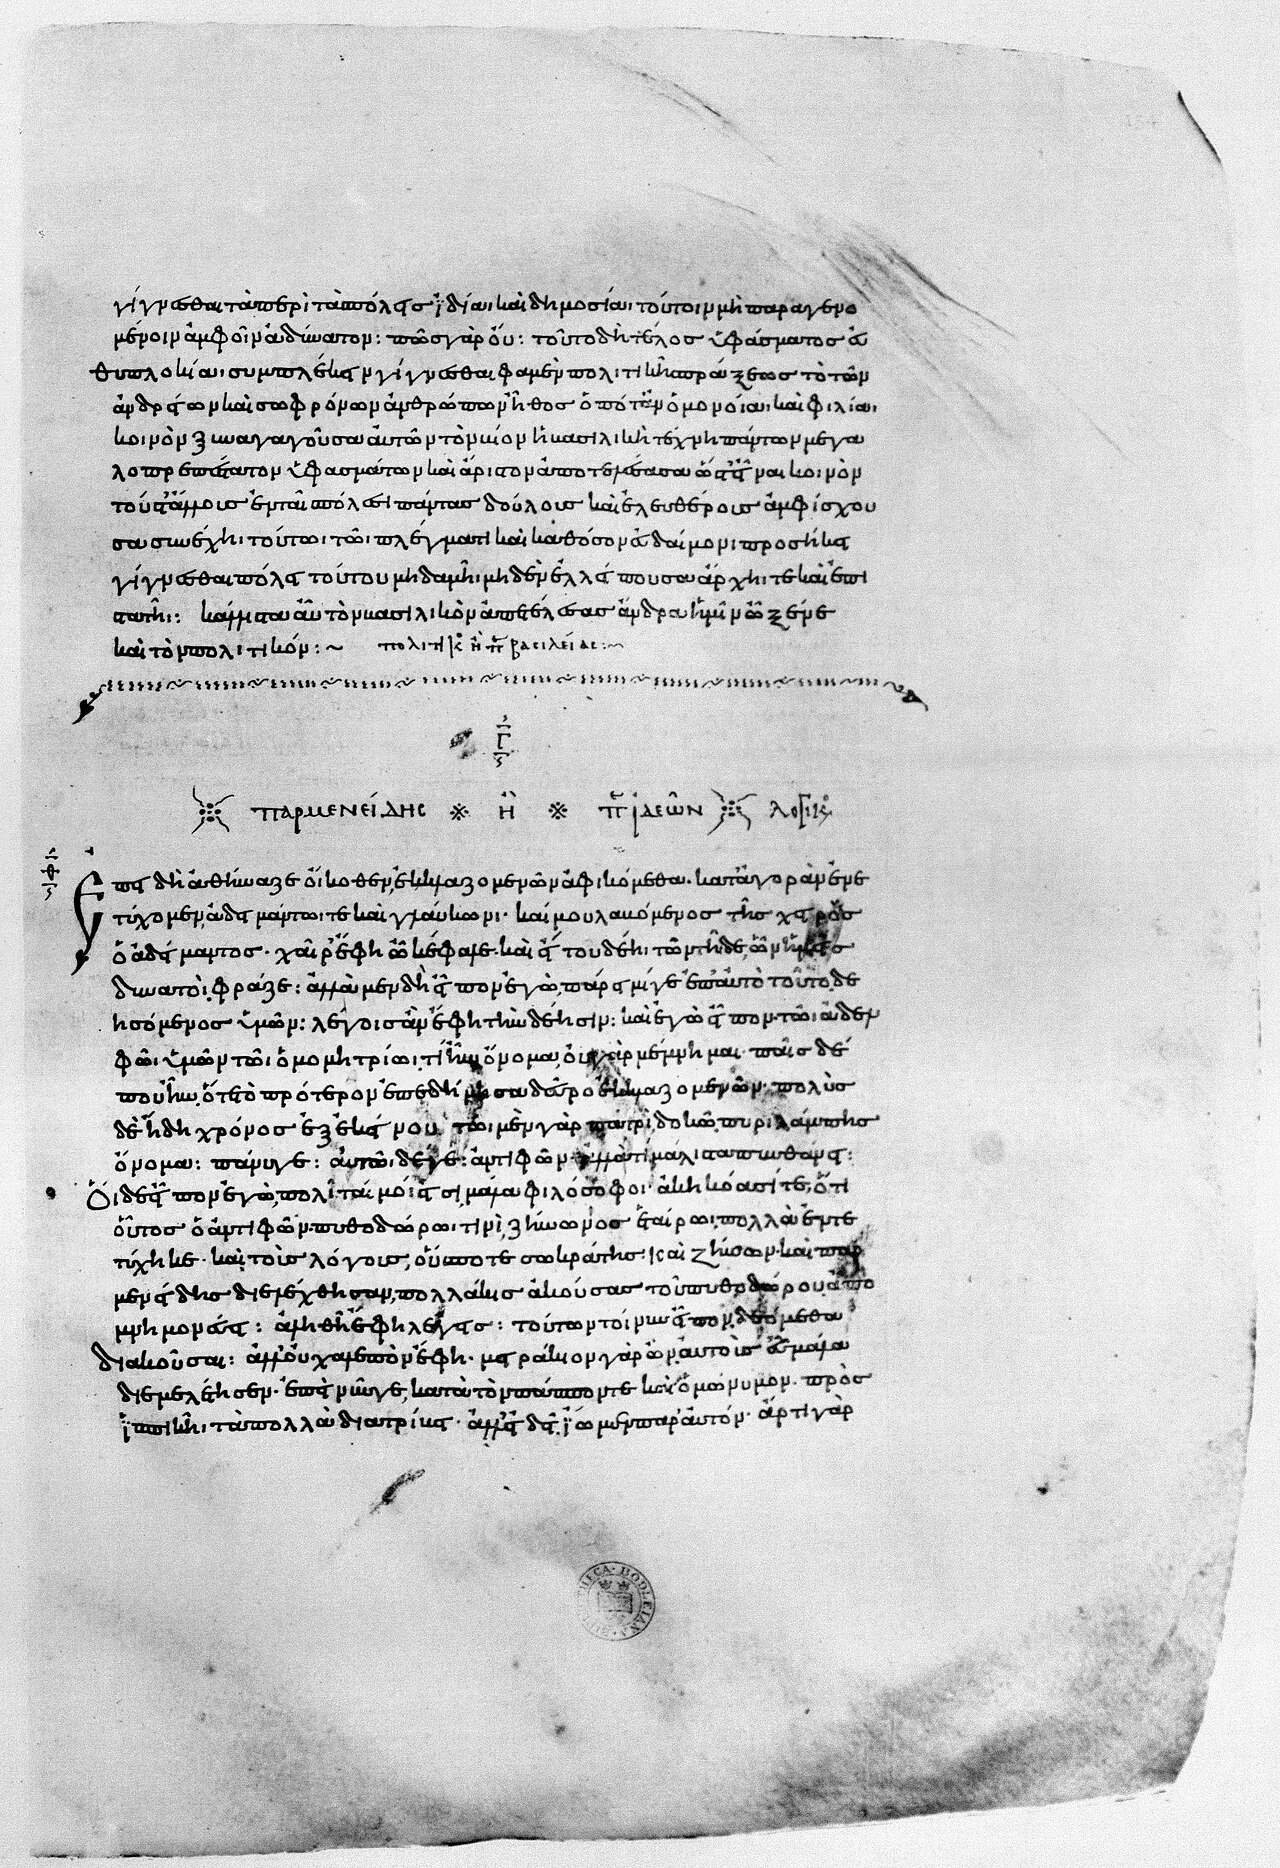 γίγνεσθαι τὰ περὶ τὰς πόλεις ἰδίαι καὶ δημοσίαι τούτοιν μὴ παραγενο
μένοιν ἀμφοῖν ἀδύνατον: πῶς γὰρ οὔ: τοῦτο δὴ τέλος ὑφάσματος εὐ
θυπλοκίαι συμπλεκὲν γίγνεσθαι φαμὲν πολιτικῆς πράξεως τὸ τῶν
ἀνδρείων καὶ σωφρόνων ἀνθρώπων ἦθος ὁπόταν ὁμονοίαι καὶ φιλίαι
κοινὸν ξυναγαγοῦσα αὐτῶν τὸν βίον ἡ βασιλικὴ τέχνη πάντων μεγα
λοπρεπέστατον ὑφασμάτων καὶ ἄριστον ἀποτελέσασα ὥστ' εἶναι κοινὸν
τούς τ' ἄλλους ἐν ταῖς πόλεσι πάντας δούλους καὶ ἐλευθέρους ἀμπίσχου
σα συνέχηι τούτωι τῶι πλέγματι καὶ καθόσον εὐδαίμονι προσήκει
γίγνεσθαι πόλει τούτου μηδαμῆι μηδὲν ἐλλείπουσα ἄρχηι τε καὶ ἐπι
στατῆι: κάλλιστα αὖ τὸν βασιλικὸν ἀπετέλεσας ἄνδρα ἡμῖν ὦ ξένε
καὶ τὸν πολιτικόν :~ πολιτικὸς ἢ περὶ βασιλείας :~
Γ
ΠΑΡΜΕΝΕΙΔΗΣ ※ Ἢ ※ ΠΕΡΙ ΙΔΕΩΝ ΛΟΓΙΚΟΣ
Ἐπειδὴ ἀθήναζε οἴκοθεν ἐκ κλαζομενῶν ἀφικόμεθα· κατ' ἀγορὰν ἐνε
τύχομεν ἀδειμάντωι τε καὶ γλαύκωνι· καί μου λαβόμενος τῆς χειρὸς
ὁ ἀδείμαντος· χαῖρ' ἔφη ὦ κέφαλε· καὶ εἴ του δέηι τῶν τῆιδε ὧν ἡμεῖς
δυνατοί φράζε: ἀλλὰ μὲν δὴ εἶπον ἐγώ, πάρειμί γε ἐπ' αὐτὸ τοῦτο δε
ησόμενος ὑμῶν: λέγοις ἂν ἔφη τὴν δέησιν: καὶ ἐγὼ εἶπον· τῶι ἀδελ
φῶι ὑμῶν τῶι ὁμομητρίωι τί ἦν ὄνομα, οὐ γὰρ μέμνημαι· παῖς δέ
που ἦν, ὅτε τὸ πρότερον ἐπεδήμησα δεῦρο ἐκ κλαζομενῶν· πολὺς
δὲ ἤδη χρόνος ἐξ ἐκείνου. τῶι μὲν γὰρ πατρὶ, δοκῶ, πυριλάμπης
ὄνομα: πάνυ γε: αὐτῶι δέ γε: ἀντιφῶν· ἀλλὰ τί μάλιστα πυνθάνει:
Οἵδε εἶπον ἐγώ, πολῖταί μοί εἰσι, μάλα φιλόσοφοι· ἀκηκόασί τε, ὅτι
οὗτος ὁ ἀντιφῶν πυθοδώρωι τινὶ, ζήνωνος ἑταίρωι, πολλὰ ἐντε
τύχηκε· καὶ τοὺς λόγους, οὕς ποτε σωκράτης καὶ ζήνων· καὶ παρ
μενείδης διελέχθησαν, πολλάκις ἀκούσας τοῦ πυθοδώρου ἀπο
μνημονεύει: ἀληθῆ ἔφη λέγεις: τούτων τοίνυν εἶπον δεόμεθα
διακοῦσαι: ἀλλ' οὐ χαλεπὸν ἔφη· μειράκιον γὰρ ὢν αὐτοὺς εὖ μάλα
διεμελέτησεν· ἐπεὶ νῦν γε, κατὰ τὸν πάππον τε καὶ ὁμώνυμον· πρὸς
ἱππικῆι τὰ πολλὰ διατρίβει· ἀλλ' εἰ δεῖ ἴωμεν παρ' αὐτόν· ἄρτι γὰρ
BODLEIANA